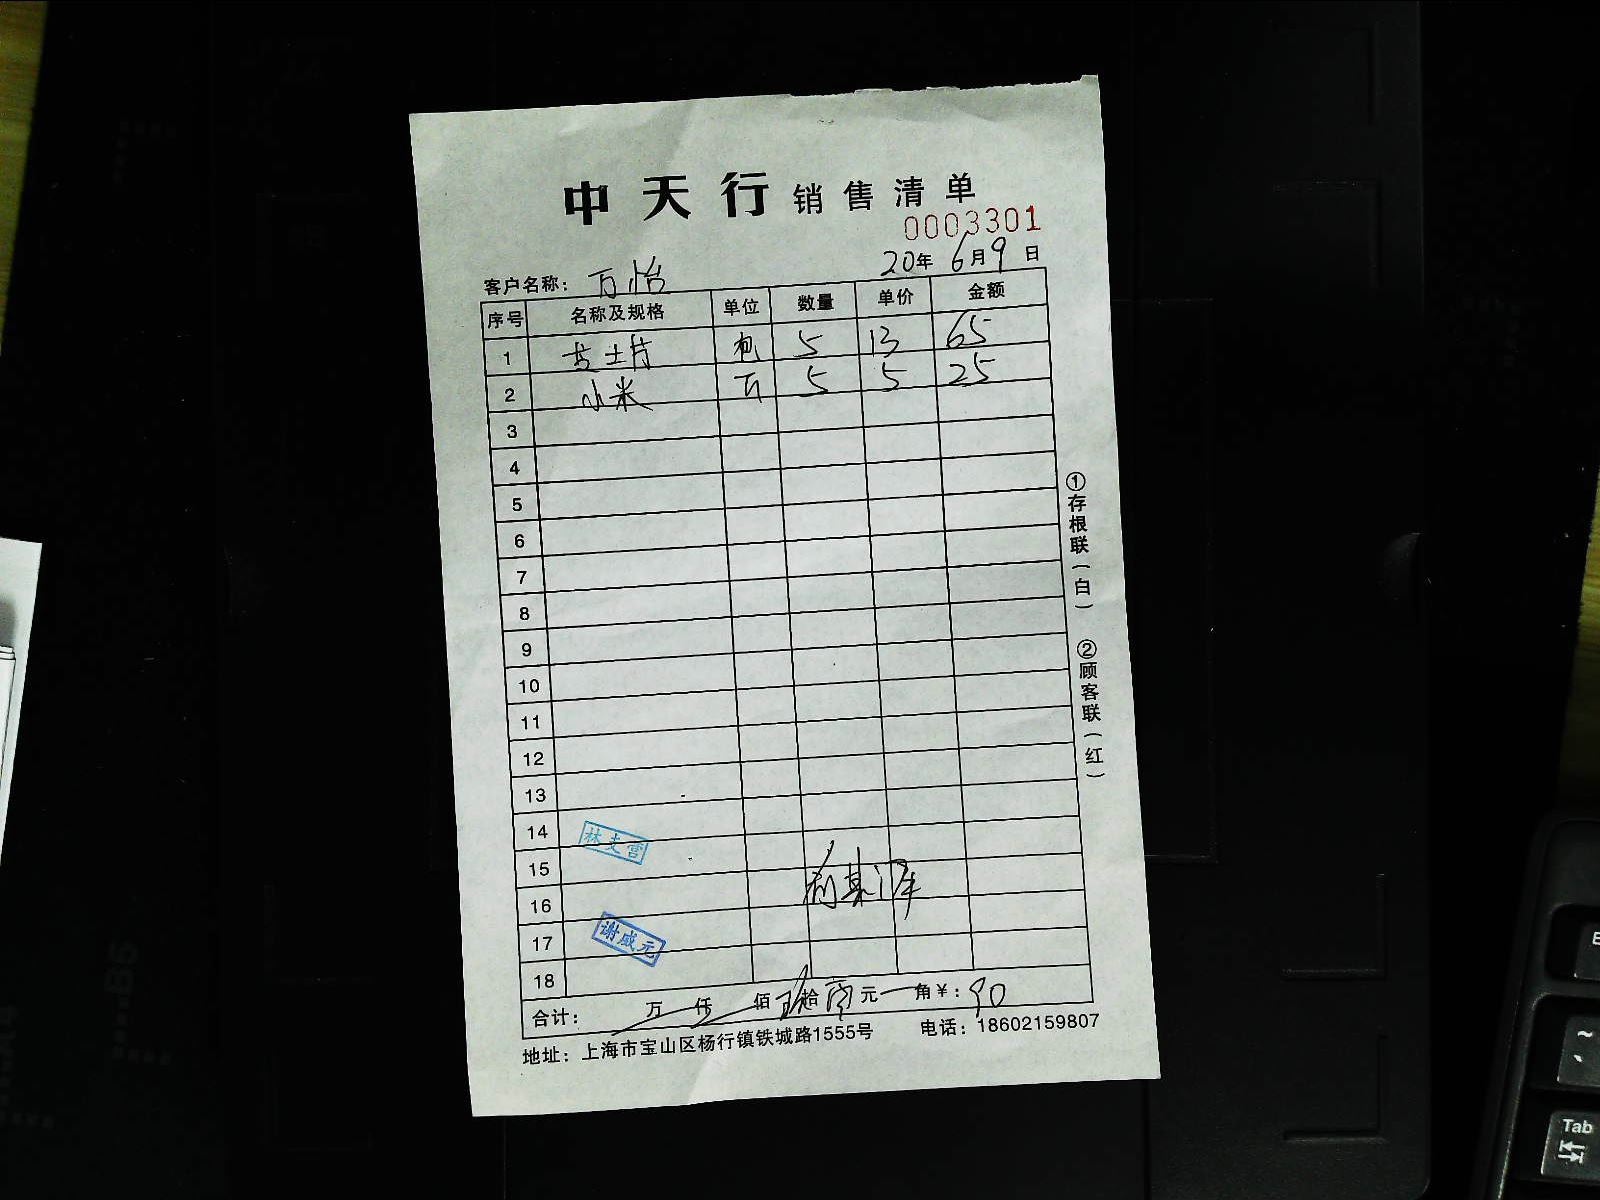 中天行销售清单
0003301
20年6月9日
客户名称：万怡
序号 名称及规格 单位 数量 单价 金额
1 吉士片 包 5 13 65
2 小米 斤 5 5 25
3
4
5
6
7
8
9
10
11
12
13
14
林支营
15
16
17
谢成元
18
合计： 万 仟 佰 玖拾零元 角￥：90
地址：上海市宝山区杨行镇铁城路1555号 电话：18602159807
①存根联（白） ②顾客联（红）
Tab